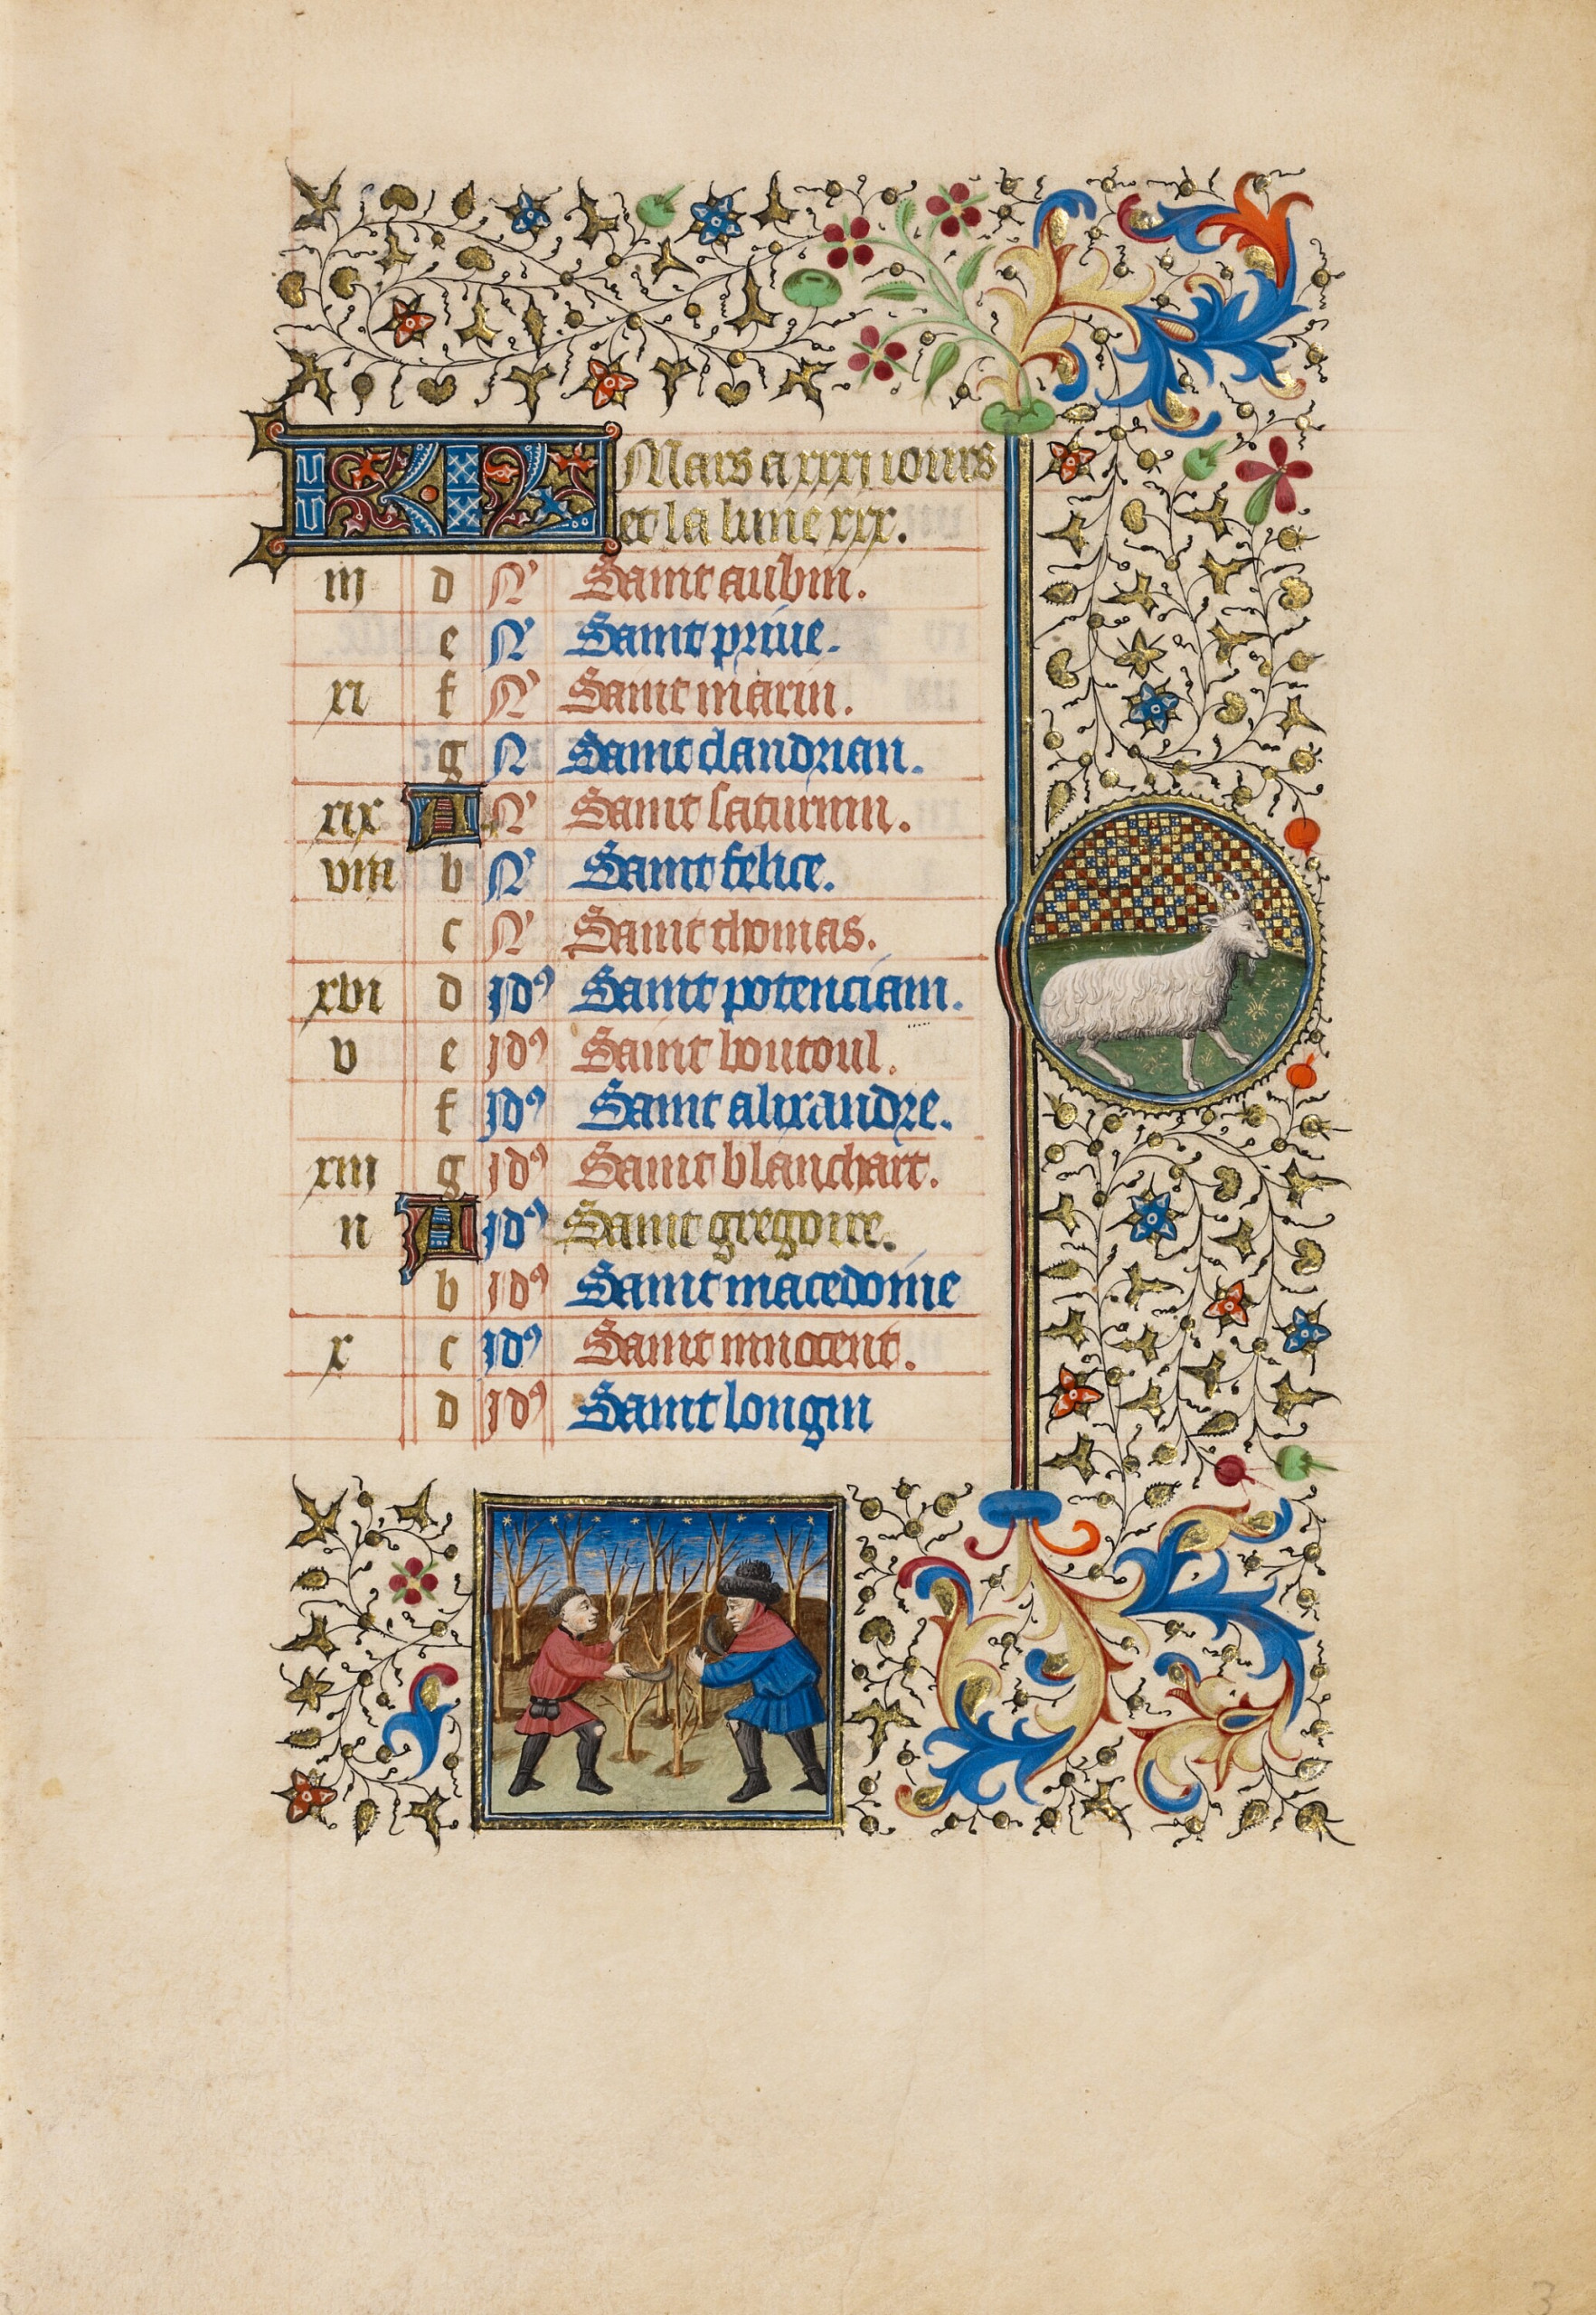 KL Mars a xxxi iours
et la lune xxx.
iij d N' Saint aubin.
e N' Saint priue.
xi f N' Saint marin.
g N Saint dandrian.
xix A N' Saint saturnin.
viii b N' Saint felice.
c N' Saint thomas.
xvi d Id9 Saint potenciam.
v e Id9 Saint boutoul.
f Id9 Saint alixandre.
xiii g Id9 Saint blanchart.
ii A Id9 Saint gregoire.
b Id9 Saint macedonie
x c Id9 Saint innocent.
d Id9 Saint longin
3